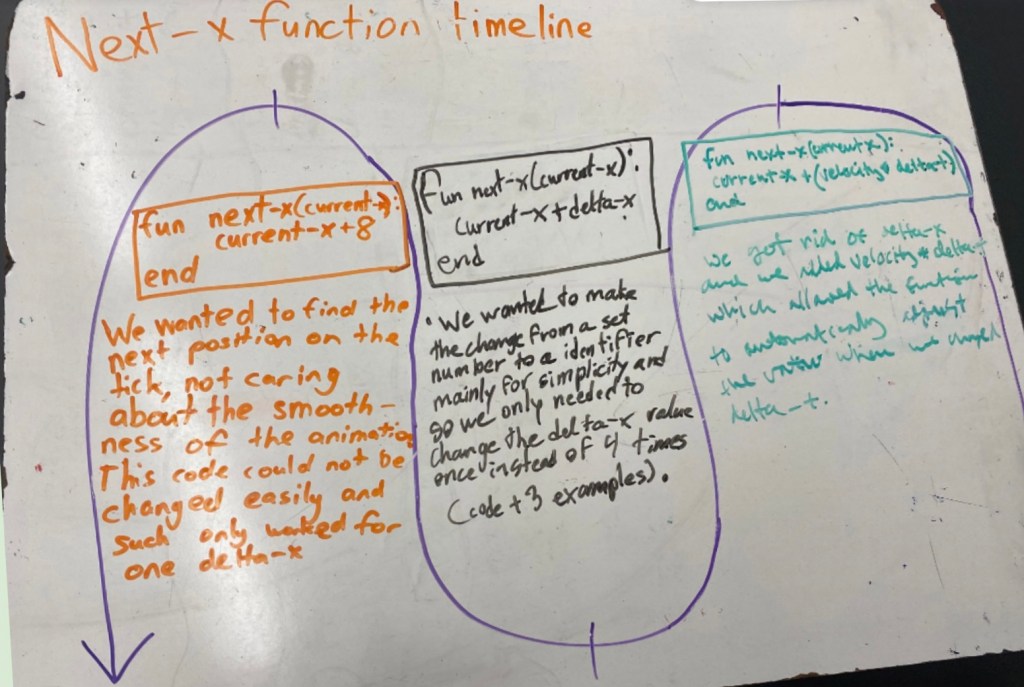 Next-x function timeline
fun next-x(current-x):
current-x+8
end
We wanted to find the
next position on the
tick, not caring
about the smooth-
ness of the animation
This code could not be
changed easily and
such only worked for
one delta-x
fun next-x(current-x):
current-x+delta-x
end
• We wanted to make
the change from a set
number to a identifier
mainly for simplicity and
so we only needed to
change the delta-x value
once instead of 4 times
(code + 3 examples).
fun next-x(current-x):
current-x + (velocity * delta-t)
end
we got rid of delta-x
and we used velocity * delta-t
which allowed the function
to automatically adjust
the value when we changed
delta-t.